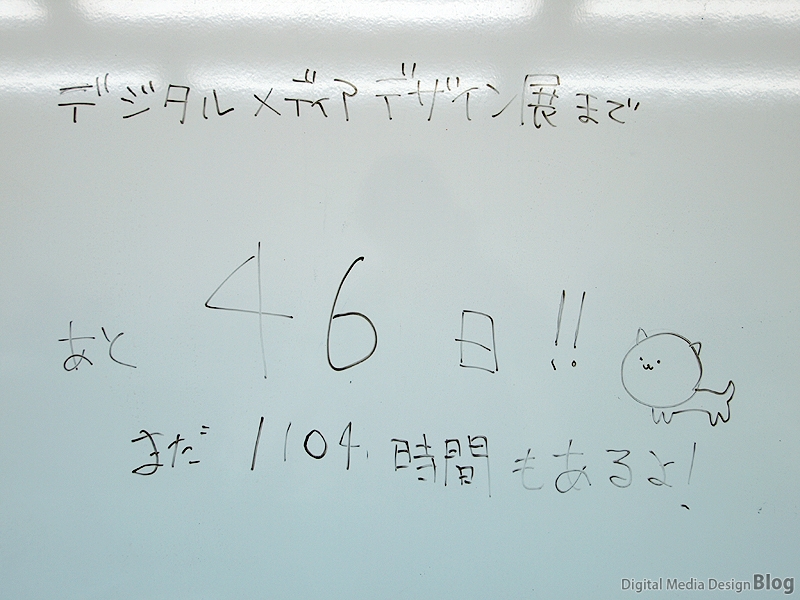 デジタルメディアデザイン展まで
あと46日!!
まだ1104時間もあるよ!
Digital Media Design Blog